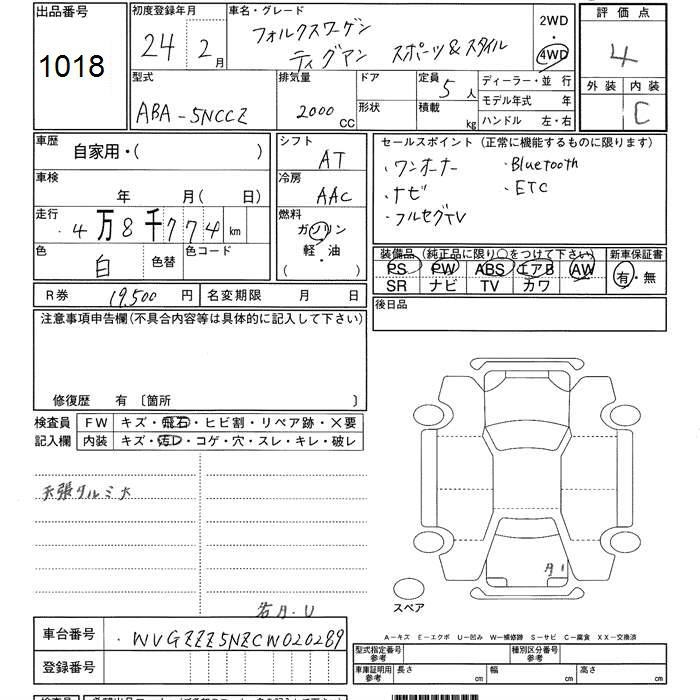 出品番号
1018
初度登録年月
24 2月
車名・グレード
フォルクスワーゲン
ティグアン スポーツ&スタイル
2WD
4WD
評価点
4
外装 内装
C
型式
ABA-5NCCZ
排気量
2000 CC
ドア
形状
定員 5人
積載 kg
ディーラー・並行
モデル年式 年
ハンドル 左・右
車歴 自家用・( )
車検 年 月( 日)
走行 4万8千774km
色 白 色替
色コード
シフト AT
冷房 AAC
燃料
ガソリン
軽・油
( )
セールスポイント(正常に機能するものに限ります)
・ワンオーナー ・Bluetooth
・ナビ ・ETC
・フルセグTV
装備品(純正品に限り○をつけて下さい)
PS PW ABS エアB AW
SR ナビ TV カワ
新車保証書
有・無
R券 19,500円
名変期限 月 日
後日品
注意事項申告欄(不具合内容等は具体的に記入して下さい)
修復歴 有〔箇所 〕
検査員
記入欄
FW キズ・飛石・ヒビ割・リペア跡・×要
内装 キズ・汚レ・コゲ・穴・スレ・キレ・破レ
天張クルミ大
スペア
車台番号 WVGZZZ5NZCW020289
登録番号
A-キズ E-エクボ U-凹み W-補修跡 S-サビ C-腐食 XX-交換済
型式指定番号
参考
種別区分番号
参考
車庫証明用
参考
長さ cm 幅 cm 高さ cm